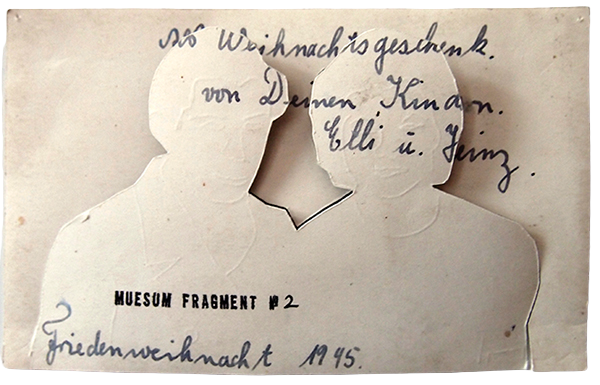 Als Weihnachtsgeschenk.
von Deinen Kindern.
Elli u. Heinz.
MUESUM FRAGMENT № 2
Friedenweihnacht 1945.